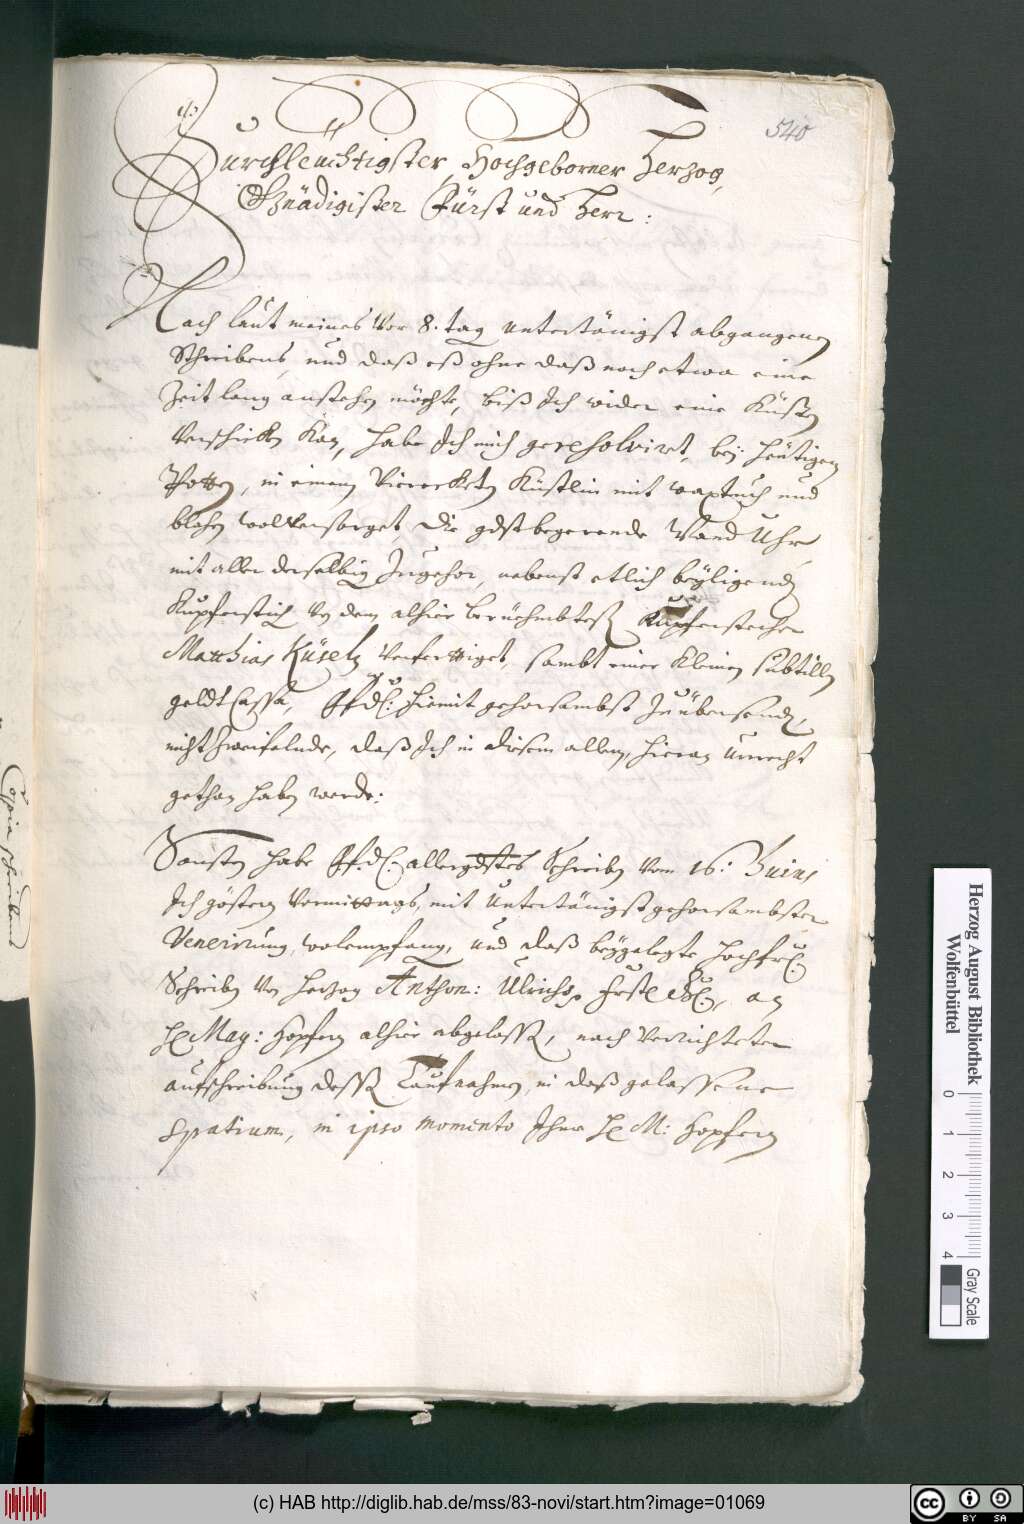 540
Durchleüchtigster, Hochgeborner Herzog,
Gnädigister Fürst und Herr:
Nach laut meines vor 8. tag untertänigst abgangenen
Schreibens, und daß eß ohne daß noch etwa eine
Zeit lang anstehen möchte, biß Ich wider eine Kisten
verschicken kan, habe Ich mich geresolvirt, bey heütigen
Botten, in einem Viereckten Küstlin mit waxtuch und
blahen wolversorget, die gdst begerende Wand Uhr
mit aller derselbig Zugehör, nebenst etlich beyligenden
Kupferstich von dem alhier berüehmbtesten Kupferstecher
Matthias Küseln verfertiget, sambt einer kleinen subtillen
geldt Cassa, hiemit gehorsambst Zuübersenden,
nicht Zweifelnde, daß Ich in diesem allem, hieran Unrecht
gethan haben werde:
Sonsten habe allergdstes Schreiben vom 16: Junij
Ich gestern Vormittags, mit Untertänigst gehorsambster
Venerirung, wolempfang, und daß beygelegte hochfrl:
Schreiben von Herzog Anthon: Ulrichs, an
H May: Hopfern alhier abgelassen, nach verrichteter
aufschreibung dessen Taufnahmen, in daß gelassene
spatium, in ipso momento Ihme H M: Hopfern
Copia schreibens
Herzog August Bibliothek
Wolfenbüttel
0 1 2 3 4
Gray Scale
(c) HAB http://diglib.hab.de/mss/83-novi/start.htm?image=01069
cc BY SA